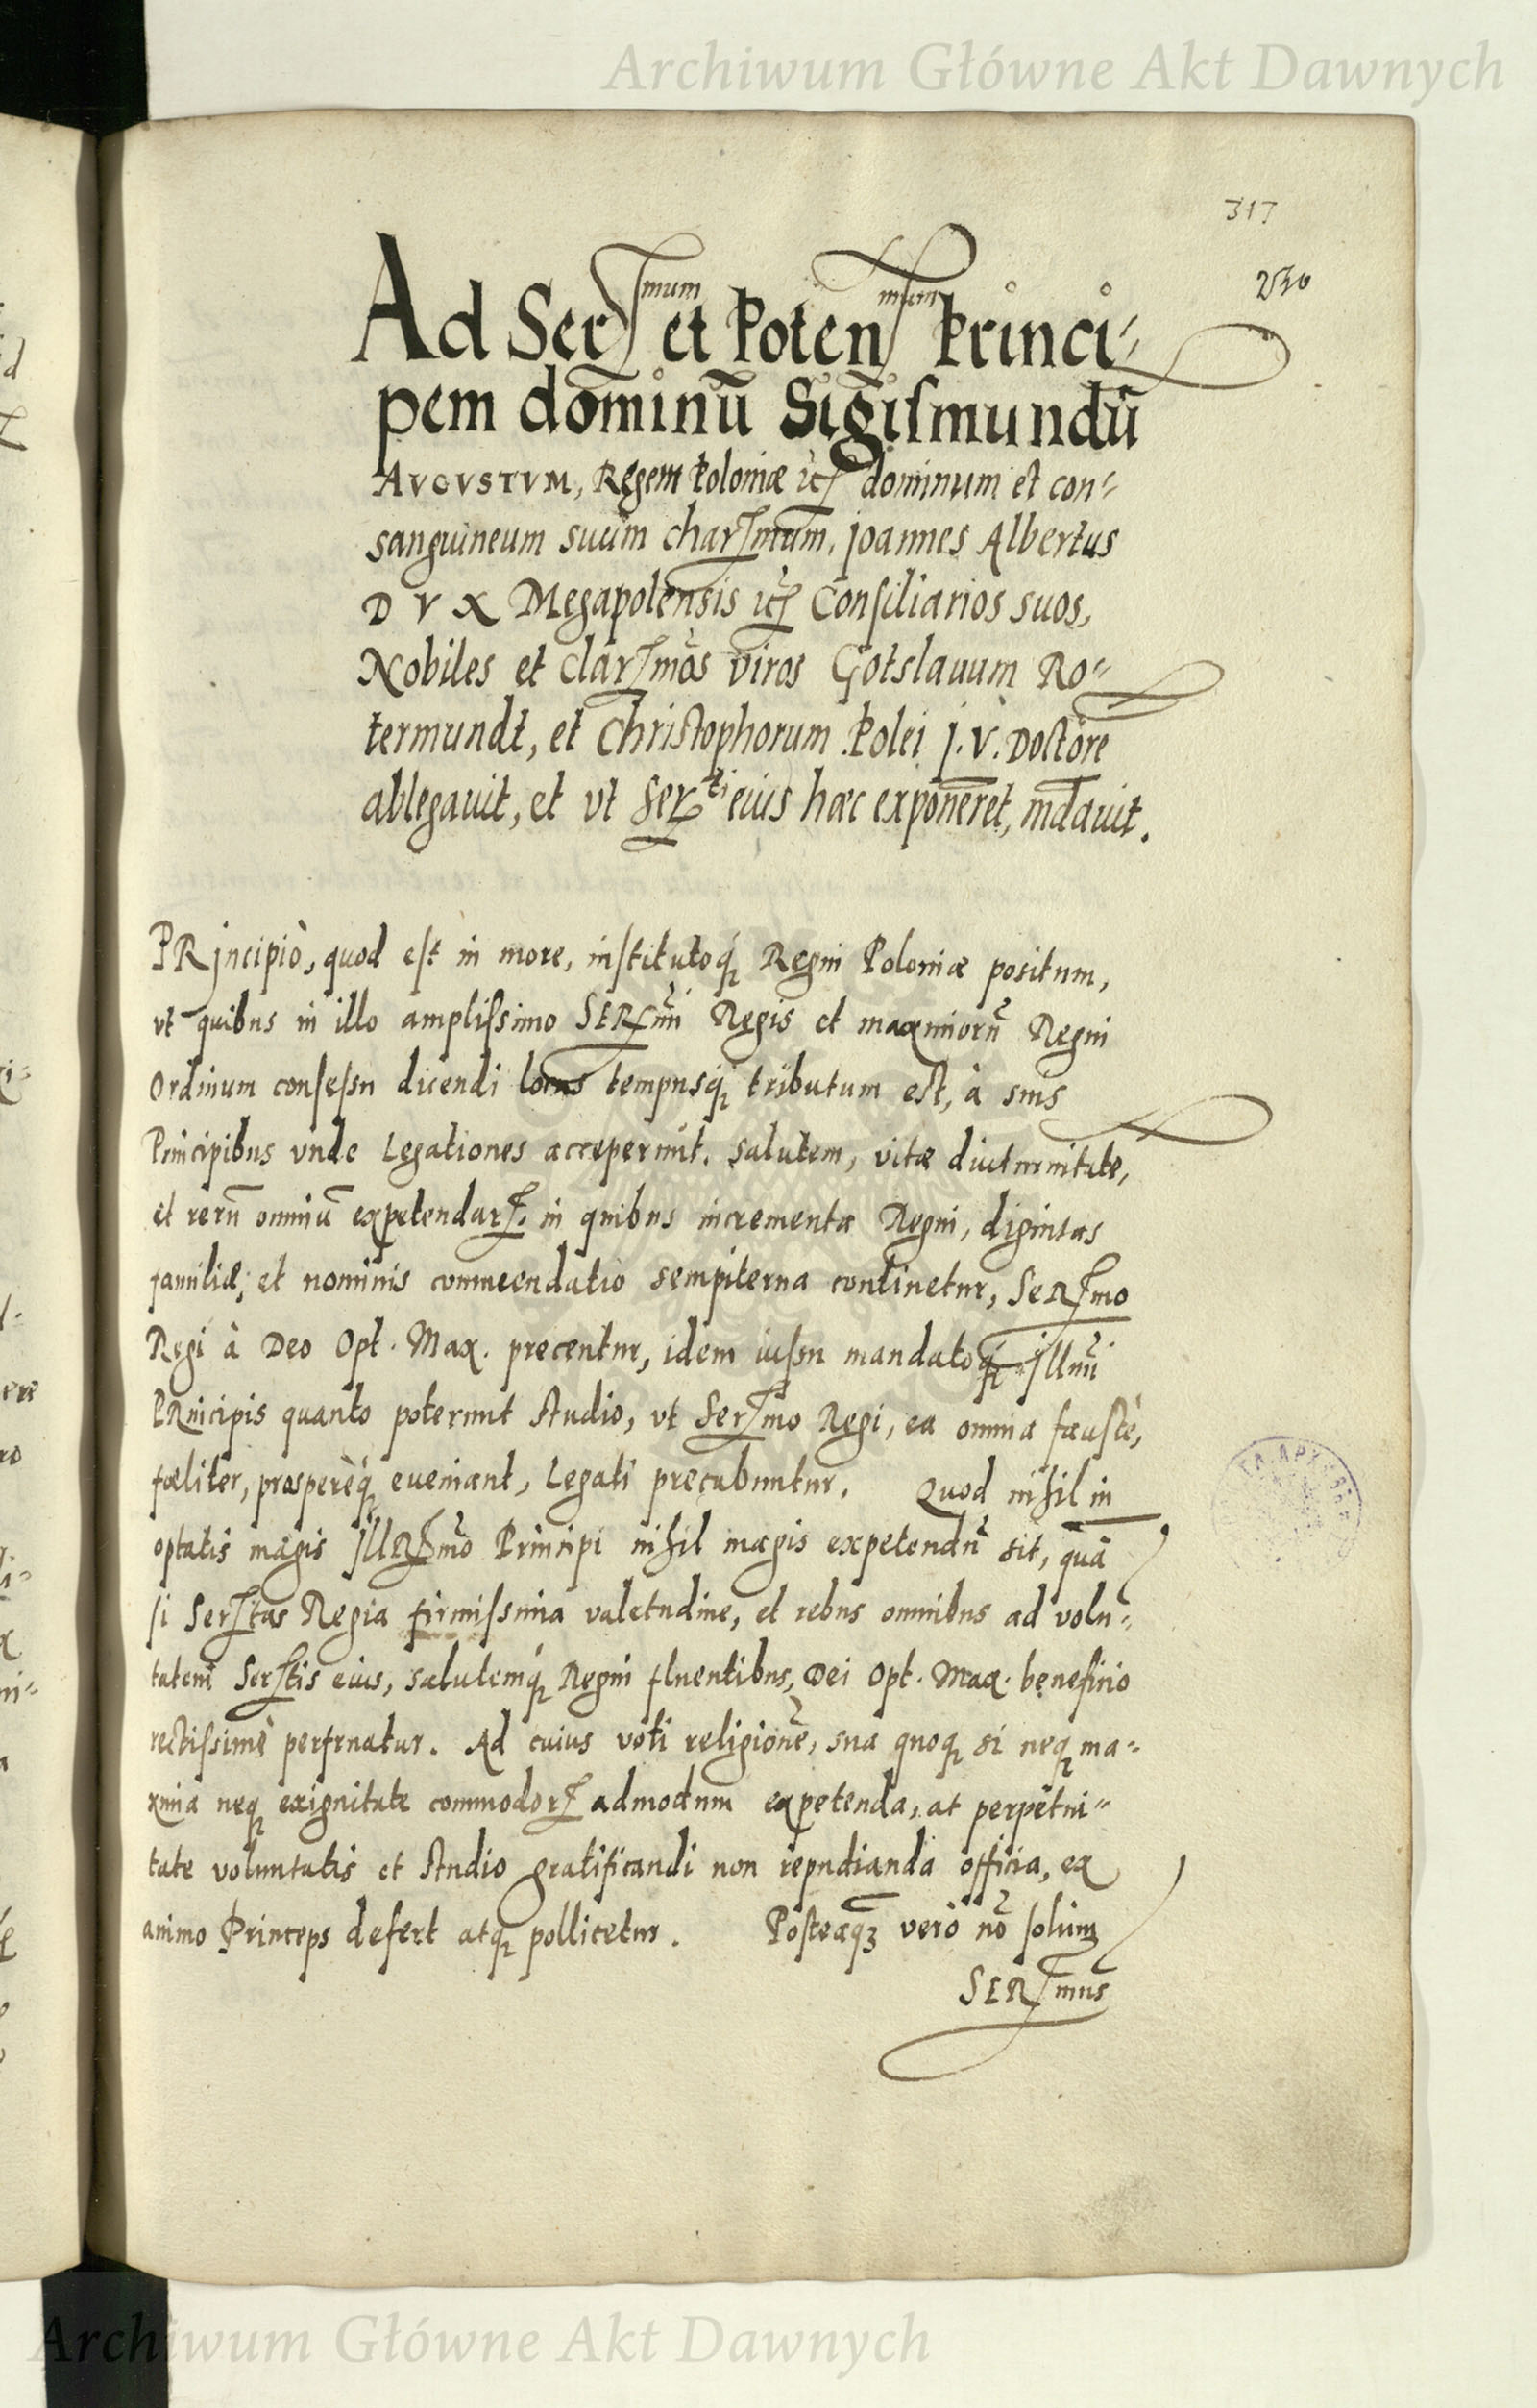 Archiwum Główne Akt Dawnych
317
230
Ad Serſmum et Potenſmum Princi-
pem dominū Sigiſmundū
AVGVSTVM, Regem Poloniæ ꝛcꝭ dominum et con-
sanguineum suum charſmum, Joannes Albertus
DVX Megapolensis ꝛcꝭ Conſiliarios suos,
Nobiles et Clarſmos viros Gotslauum Ro-
termundt, et Christophorum Polei J. V. Doctorē
ablegauit, et vt Serti eius hæc exponeret, mdauit.
PRjncipiò, quod eſt in more, inſtitutoq́ꝫ Regni Poloniæ positum,
vt quibus in illo ampliſsimo SERſmi Regis et maximiorū Regni
Ordinum conſeſsu dicendi locus tempusq́ꝫ tributum est, à suis
Principibus vnde Legationes acceperunt. salutem, vitæ diuturnitatē,
et rerū omniū expetendarꝝ. in quibus incrementa Regni, dignitas
familiæ, et nominis commendatio sempiterna continetur, SERſmo
Regi à Deo Opt. Max. precentur, idem iuſsu mandatoq́ꝫ Jllmi
PRincipis quanto poterunt studio, vt Serſmo Regi, ea omnia fæustè,
fæliter, prosperèq́ꝫ eueniant, Legati precabuntur. Quod nihil in
optatis magis JllRſmo Principi nihil magis expetendū sit, quā
ſi Serſtas Regia firmiſsima valetudine, et rebus omnibus ad volun-
tatem Serſtis eius, salutemq́ꝫ Regni fluentibus, Dei Opt. Max. beneficio
rectiſsimè perfruatur. Ad cuius voti religionē, sua quoqꝫ si neqꝫ ma-
xima neqꝫ exignitate commodorꝝ admodum expetenda, at perpetui-
tate voluntatis et studio gratificandi non repudianda officia, ex
animo Princeps defert atqꝫ pollicetur. Posteaqꝫ verò nō ſolum
SERſmus
Archiwum Główne Akt Dawnych